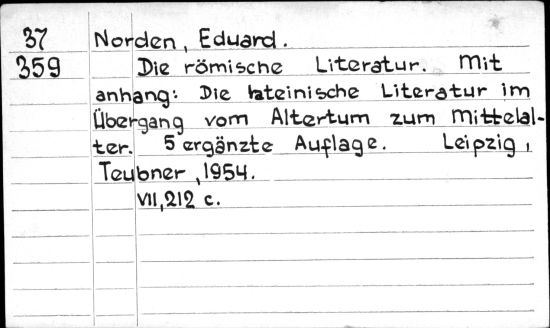 37 Norden, Eduard.
359 Die römische Literatur. Mit
anhang: Die lateinische Literatur im
Übergang vom Altertum zum Mittelal-
ter. 5 ergänzte Auflage. Leipzig,
Teubner, 1954.
VII, 212 c.